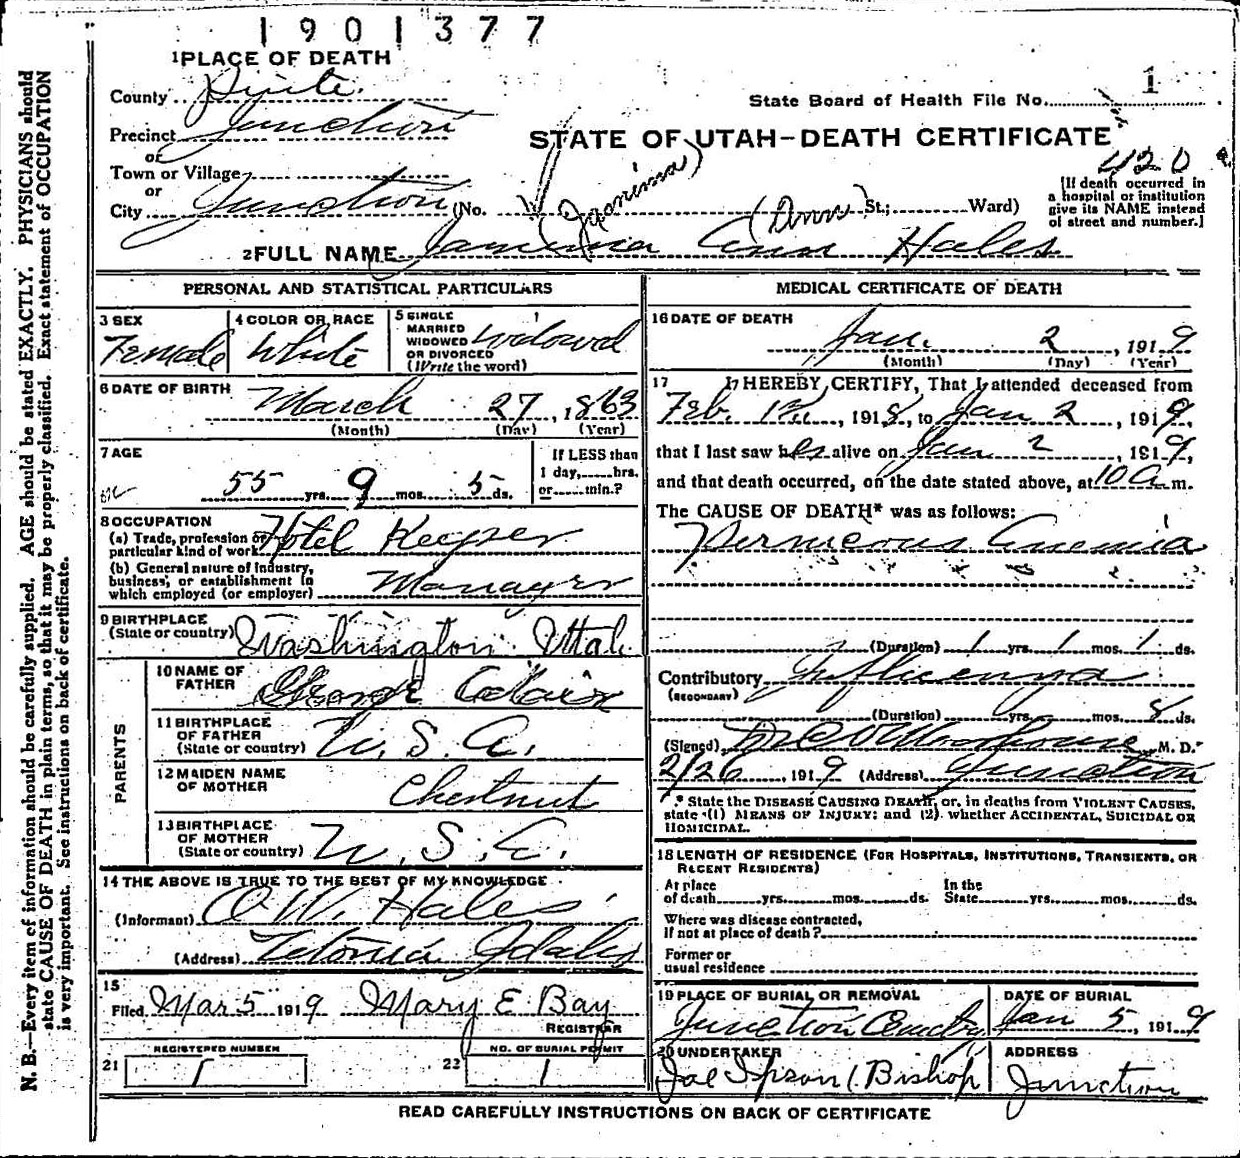 1901377
1 PLACE OF DEATH
County Piute
State Board of Health File No. 1
Precinct Junction
STATE OF UTAH—DEATH CERTIFICATE
or
420
Town or Village
or
City Junction (No. St.; Ward)
[If death occurred in
a hospital or institution
give its NAME instead
of street and number.]
(Jemima) (Ann)
2 FULL NAME Jamima Ann Hales
PERSONAL AND STATISTICAL PARTICULARS
3 SEX Female
4 COLOR OR RACE White
5 SINGLE
MARRIED
WIDOWED
OR DIVORCED
(Write the word)
Widowed
6 DATE OF BIRTH March 27, 1863
(Month) (Day) (Year)
7 AGE
55 yrs. 9 mos. 5 ds.
If LESS than
1 day, hrs.
or min.?
8 OCCUPATION
(a) Trade, profession or
particular kind of work Hotel Keeper
(b) General nature of industry,
business, or establishment in
which employed (or employer) Manager
9 BIRTHPLACE
(State or country) Washington Utah
PARENTS
10 NAME OF
FATHER George Adair
11 BIRTHPLACE
OF FATHER
(State or country) U. S. A.
12 MAIDEN NAME
OF MOTHER Chestnut
13 BIRTHPLACE
OF MOTHER
(State or country) U. S. A.
14 THE ABOVE IS TRUE TO THE BEST OF MY KNOWLEDGE
(Informant) O W. Hales
(Address) Tetonia Idaho
15
Filed Mar 5 1919 Mary E Bay
REGISTRAR
REGISTERED NUMBER
21 1
NO. OF BURIAL PERMIT
22 1
MEDICAL CERTIFICATE OF DEATH
16 DATE OF DEATH
Jan. 2, 1919
(Month) (Day) (Year)
17 I HEREBY CERTIFY, That I attended deceased from
Feb. 1st, 1918, to Jan 2, 1919,
that I last saw her alive on Jan 2, 1919,
and that death occurred, on the date stated above, at 10 A. m.
The CAUSE OF DEATH* was as follows:
Pernicious Anemia
(Duration) 1 yrs. 1 mos. 1 ds.
Contributory Influenza
(SECONDARY)
(Duration) yrs. mos. 8 ds.
(Signed) M. D.
2/26, 1919 (Address) Junction
* State the DISEASE CAUSING DEATH, or, in deaths from VIOLENT CAUSES,
state (1) MEANS OF INJURY; and (2) whether ACCIDENTAL, SUICIDAL OR
HOMICIDAL.
18 LENGTH OF RESIDENCE (FOR HOSPITALS, INSTITUTIONS, TRANSIENTS, OR
RECENT RESIDENTS)
At place
of death yrs. mos. ds.
In the
State yrs. mos. ds.
Where was disease contracted,
If not at place of death?
Former or
usual residence
19 PLACE OF BURIAL OR REMOVAL
Junction Cemetry
DATE OF BURIAL
Jan 5, 1919
20 UNDERTAKER
Joe Ipson (Bishop
ADDRESS
Junction
READ CAREFULLY INSTRUCTIONS ON BACK OF CERTIFICATE
N. B.—Every item of information should be carefully supplied. AGE should be stated EXACTLY. PHYSICIANS should
state CAUSE OF DEATH in plain terms, so that it may be properly classified. Exact statement of OCCUPATION
is very important. See instructions on back of certificate.